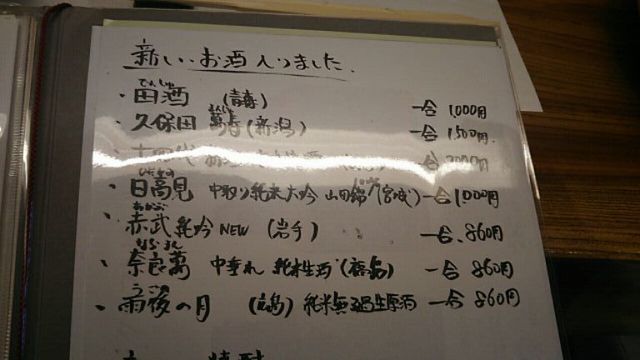 新しいお酒入りました
でんしゅ
・田酒 (青森) 一合 1,000円
・久保田 萬寿 (新潟) 一合 1,500円
十四代 一合 2000円
・日高見 中取り純米大吟 山田錦 (宮城) 一合 1,000円
あかぶ
・赤武 純吟 NEW (岩手) 一合 860円
・奈良萬 中垂れ 純米生酒 (福島) 一合 860円
うご
・雨後の月 (広島) 純米無濾過生原酒 一合 860円